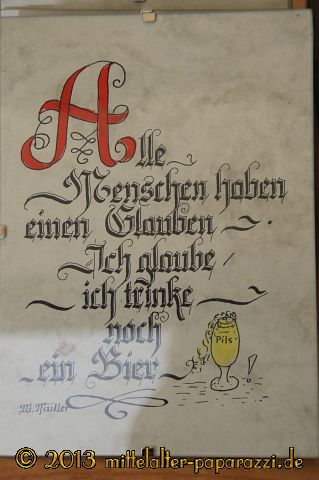 Alle
Menschen haben
einen Glauben
Ich glaube,
ich trinke
noch
ein Bier
Pils
© 2013 mittelalter-paparazzi.de